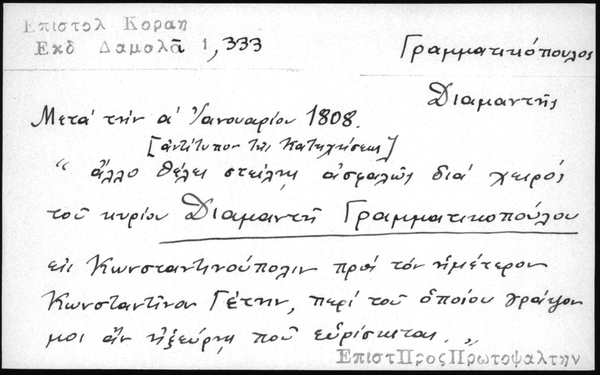 Επιστολ Κοραη
Εκδ Δαμαλᾶ 1, 333
Γραμματικόπουλος
Διαμαντῆς
Μετά τήν α' Ἰανουαρίου 1808.
[ἀντίτυπον τῆς Κατηχήσεως]
" ἄλλο θέλεις στείλῃ ἀσφαλῶς διά χειρός
τοῦ κυρίου Διαμαντῆ Γραμματικοπούλου
εἰς Κωνσταντινούπολιν πρός τόν ἡμέτερον
Κωνσταντῖνον Γέτην, περί τοῦ ὁποίου γράψον
μοι ἄν ἠξεύρῃς ποῦ εὑρίσκεται. "
ΕπιστΠροςΠρωτοψαλτην